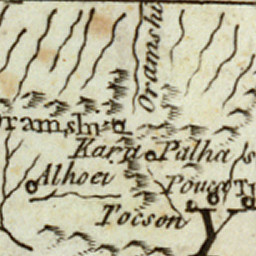 Oramshi
ramshi
Kara Palha
Alhoei
Tocson